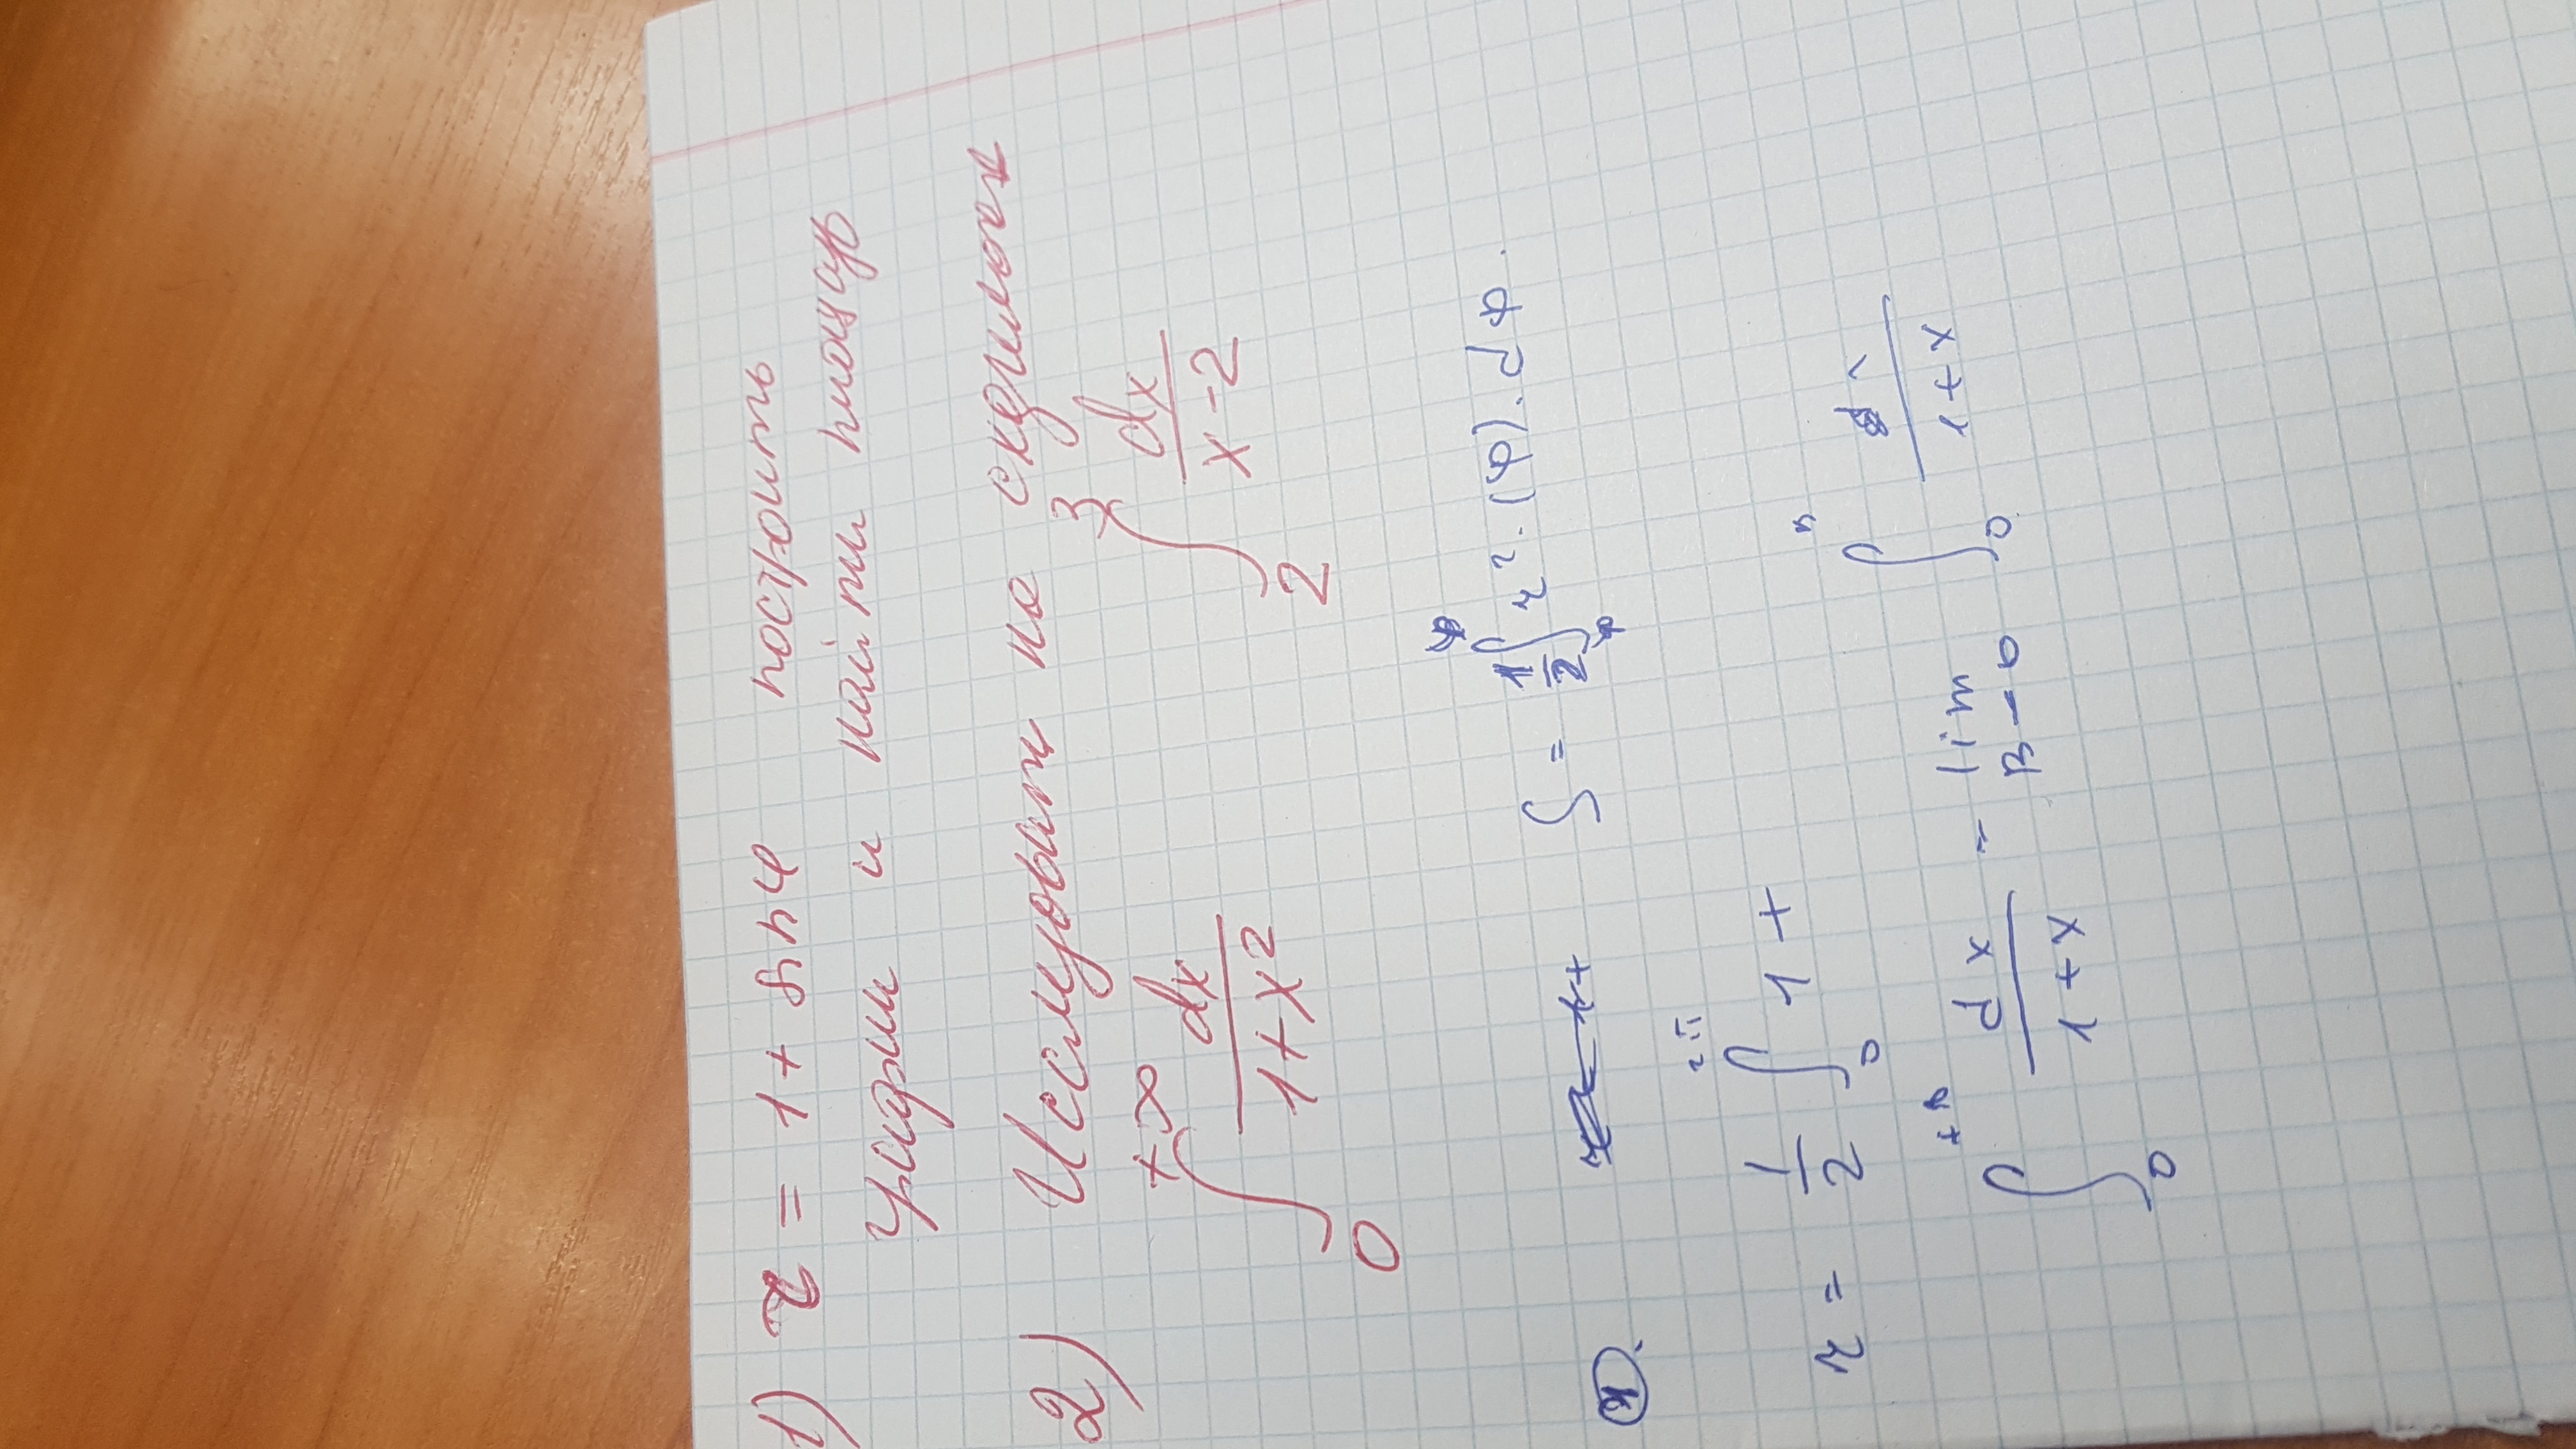 1) r = 1 + sin φ построить
график и найти площадь
2) Исследовать на сходимость
+∞ ∫ 0 dx / 1+x² 3 ∫ 2 dx / x-2
S = 1/2 φ ∫ φ r². (φ). dφ.
1.
r = 1/2 2π ∫ 0 1 +
∫ 0 dx / 1+x = lim B→0 ∫ 0 / 1+x